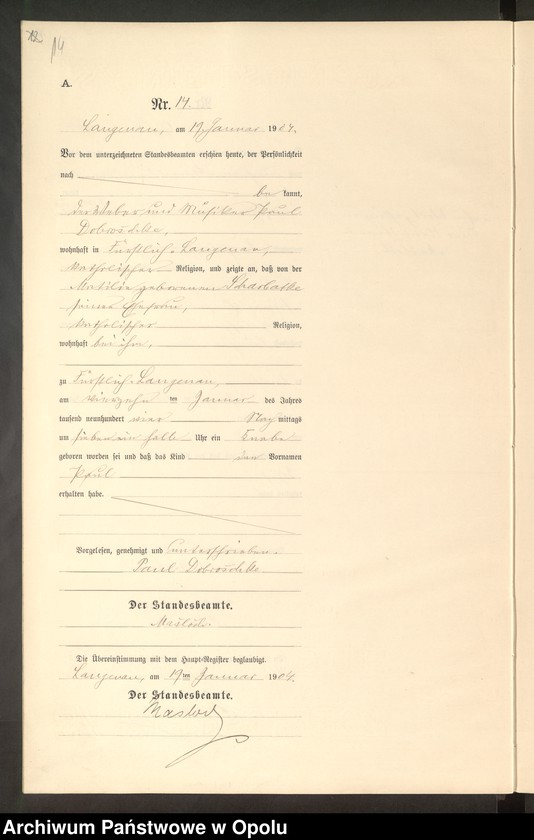 14
A.
Nr. 14.
Langenau, am 19 Januar 1904.
Vor dem unterzeichneten Standesbeamten erschien heute, der Persönlichkeit
nach
be kannt,
der Weber und Musiker Paul
wohnhaft in Fürstlich-Langenau,
katholischer Religion, und zeigte an, daß von der
geborenen
seiner Ehefrau,
katholischer Religion,
wohnhaft bei ihm,
zu Fürstlich-Langenau,
am vierzehn ten Januar des Jahres
tausend neunhundert vier Nach mittags
um sieben ein halb Uhr ein Knabe
geboren worden sei und daß das Kind den Vornamen
Paul
erhalten habe.
Vorgelesen, genehmigt und unterschrieben.
Paul
Der Standesbeamte.
Die Übereinstimmung mit dem Haupt-Register beglaubigt
Langenau, am 19ten Januar 1904.
Der Standesbeamte.
Archiwum Państwowe w Opolu